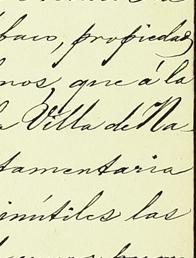 bais, propiedad
mos, que á la
a Villa de Na
tamentaria
inútiles las